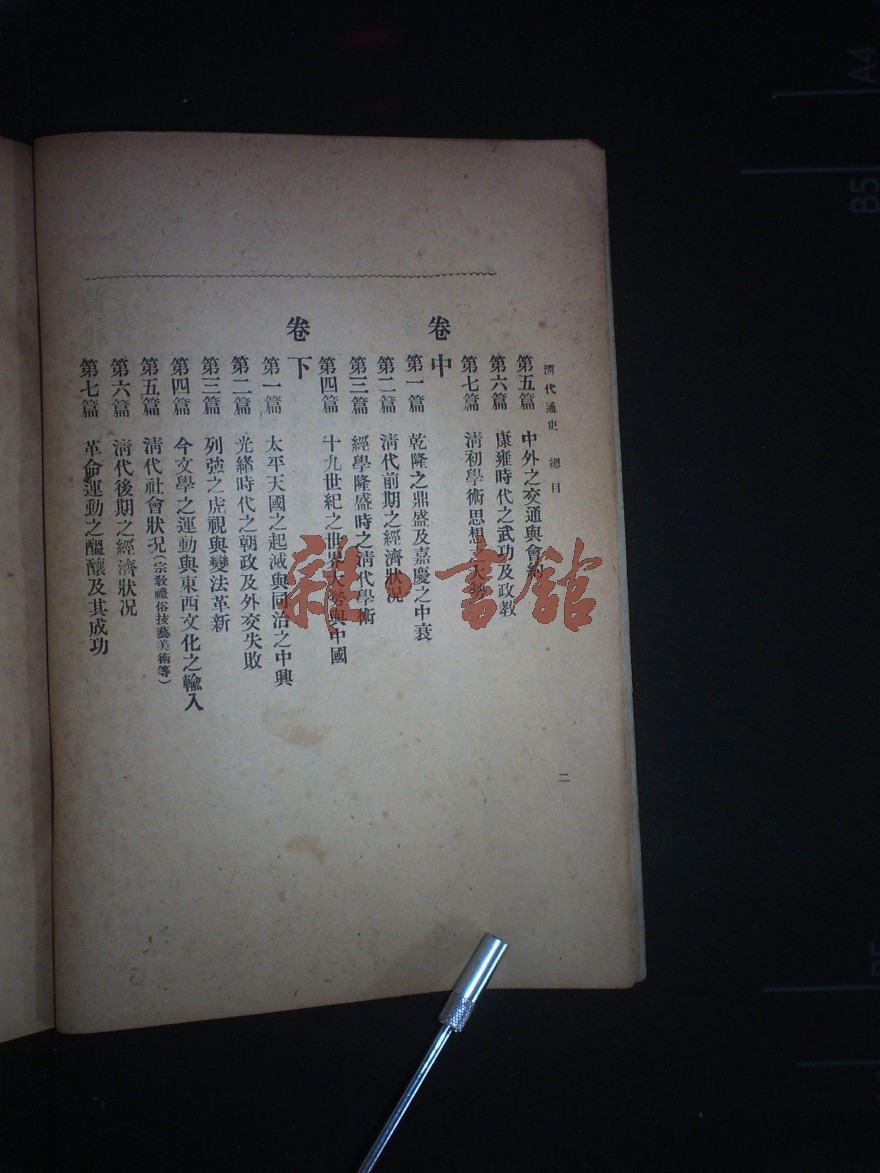 清代通史 總目
第五篇 中外之交通與會約
第六篇 康雍時代之武功及政教
第七篇 清初學術思想之大勢
卷中
第一篇 乾隆之鼎盛及嘉慶之中衰
第二篇 清代前期之經濟狀況
第三篇 經學隆盛時之清代學術
第四篇 十九世紀之世界大勢與中國
卷下
第一篇 太平天國之起滅與同治之中興
第二篇 光緒時代之朝政及外交失敗
第三篇 列強之虎視與變法革新
第四篇 今文學之運動與東西文化之輸入
第五篇 清代社會狀況(宗敎禮俗技藝美術等)
第六篇 清代後期之經濟狀況
第七篇 革命運動之醞釀及其成功
二
雜·書館
A4
B5